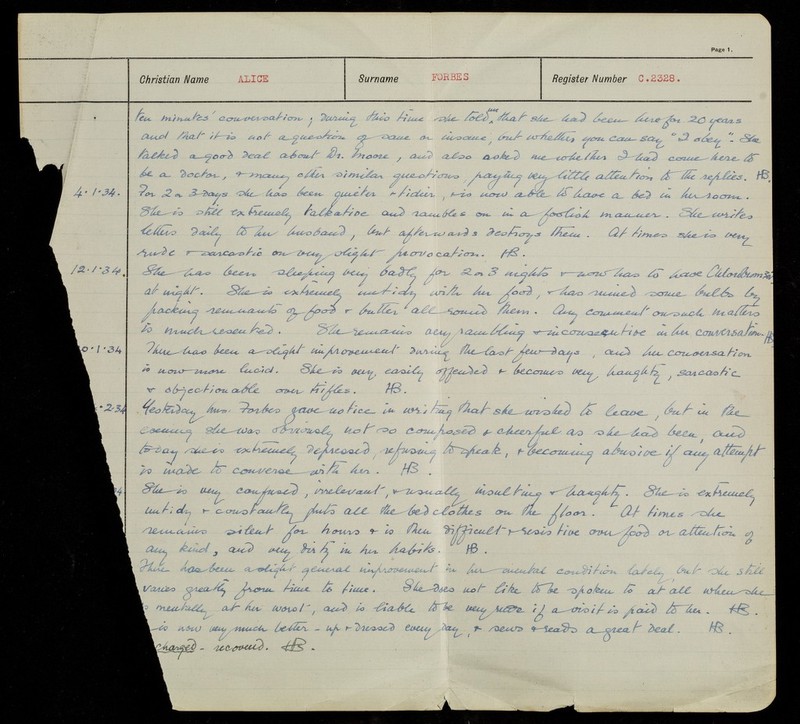 Page 1.
Christian Name ALICE Surname FORBES Register Number C.2328.
ten minutes' conversation; during this time she told me that she had been here for 20 years
and that it is not a question of sane or insane, but whether you can say "I obey". She
talked a good deal about Dr. Moore, and also asked me whether I had come here to
be a Doctor, & many other similar questions, paying very little attention to the replies. HB.
4.1.34. For 2 or 3 days she has been quieter & tidier, & is now able to have a bed in her room.
She is still extremely talkative and rambles on in a foolish manner. She writes
letters daily to her husband, but afterwards destroys them. At times she is very
rude & sarcastic on very slight provocation. HB.
12.1.34. She has been sleeping very badly for 2 or 3 nights & now has to have
at night. She is extremely untidy with her food, & has ruined some bulbs by
packing remnants of food & butter all round them. Any comment on such matters
is much resented. She remains very rambling & inconsecutive in her conversation. HB
0.1.34 There has been a slight improvement during the last few days, and her conversation
is now more lucid. She is very easily offended & becomes very haughty, sarcastic
& objectionable over trifles. HB.
.2.34 Yesterday Mrs. Forbes gave notice in writing that she wished to leave, but in the
evening she was obviously not so composed & cheerful as she had been, and
to-day she is extremely depressed, refusing to speak, & becoming abusive if any attempt
is made to converse with her. HB.
34. She is very confused, irrelevant, & usually insulting & haughty. She is extremely
untidy & constantly puts all the bedclothes on the floor. At times she
remains silent for hours & is then difficult & resistive over food or attention of
any kind, and very dirty in her habits. HB.
There has been a slight general improvement in her mental condition lately, but she still
varies greatly from time to time. She does not like to be spoken to at all when she
is mentally at her worst, and is liable to be very rude if a visit is paid to her. HB.
is now very much better - up & dressed every day, & sews & reads a great deal. HB.
charged - recovered. HB.